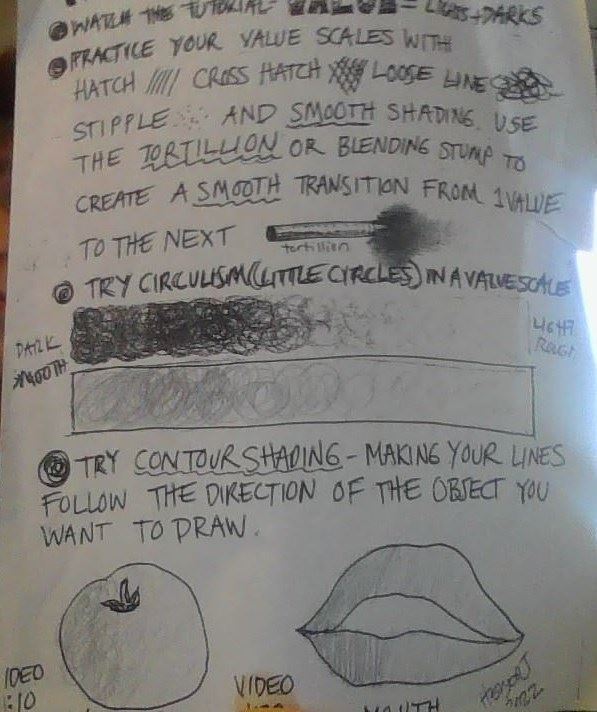 WATCH THE TUTORIAL- VALUE = LIGHTS+DARKS
PRACTICE YOUR VALUE SCALES WITH
HATCH CROSS HATCH LOOSE LINE
STIPPLE AND SMOOTH SHADING. USE
THE TORTILLION OR BLENDING STUMP TO
CREATE A SMOOTH TRANSITION FROM 1 VALUE
TO THE NEXT
tortillion
TRY CIRCULISM (LITTLE CIRCLES) IN A VALUE SCALE
DARK
LIGHT
SMOOTH
TRY CONTOUR SHADING - MAKING YOUR LINES
FOLLOW THE DIRECTION OF THE OBJECT YOU
WANT TO DRAW.
IDEO
:10
VIDEO
MOUTH
2022